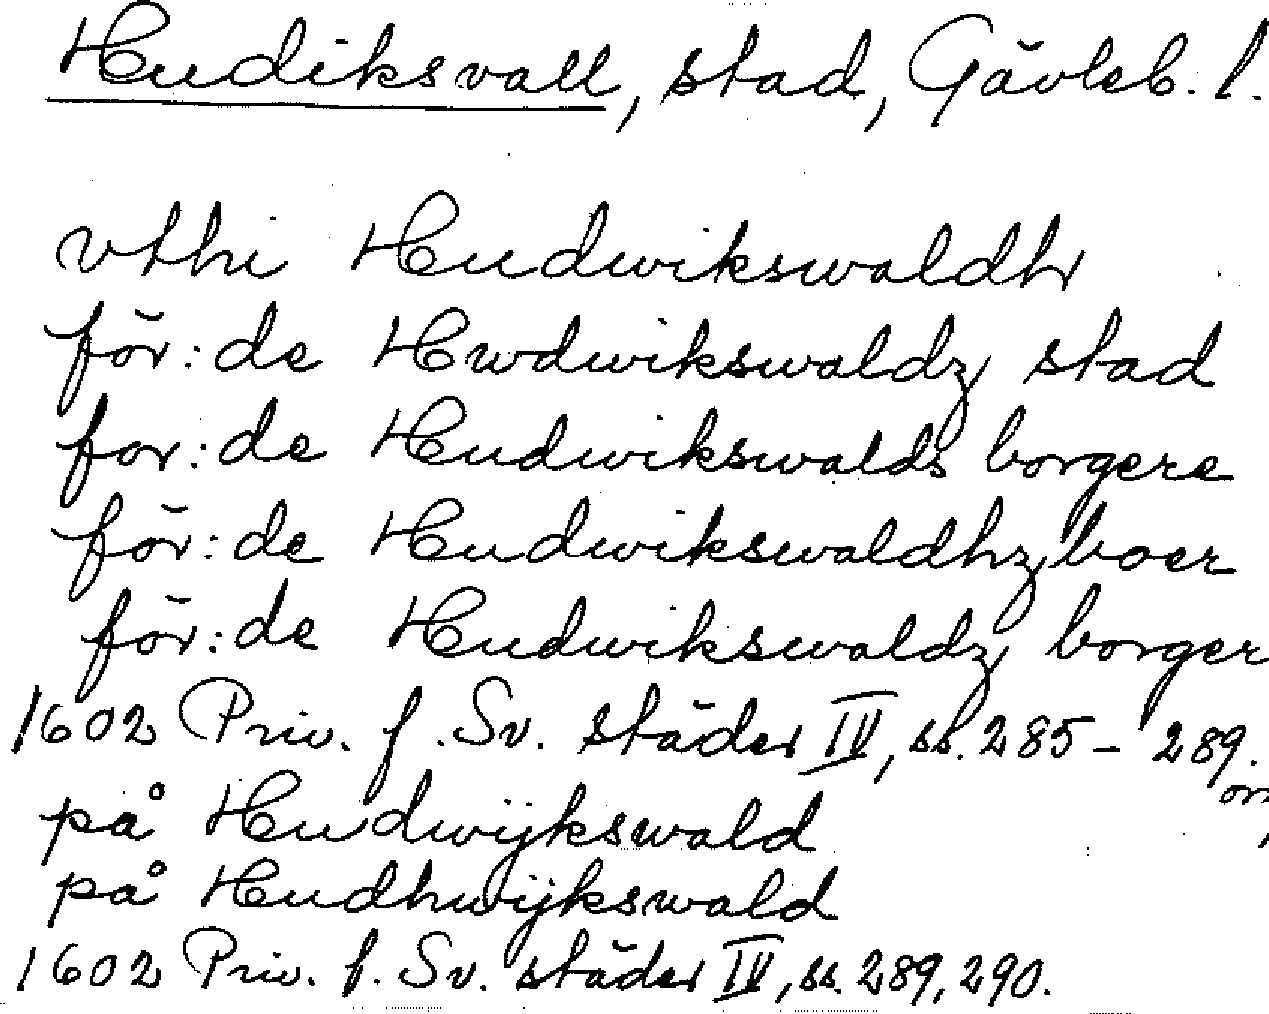 Hudiksvall, stad, Gävleb. l.
vthi Hudwikswaldh
för:de Hwdwikswaldz stad
for:de Hudwikswalds borgere
för:de Hudwikswaldhz boer
för:de Hudwikswaldz borger
1602 Priv. f. Sv. städer IV, ss. 285-289.
på Hudwijkswald
på Hudhwijkswald
1602 Priv. f. Sv. städer IV, ss. 289, 290.